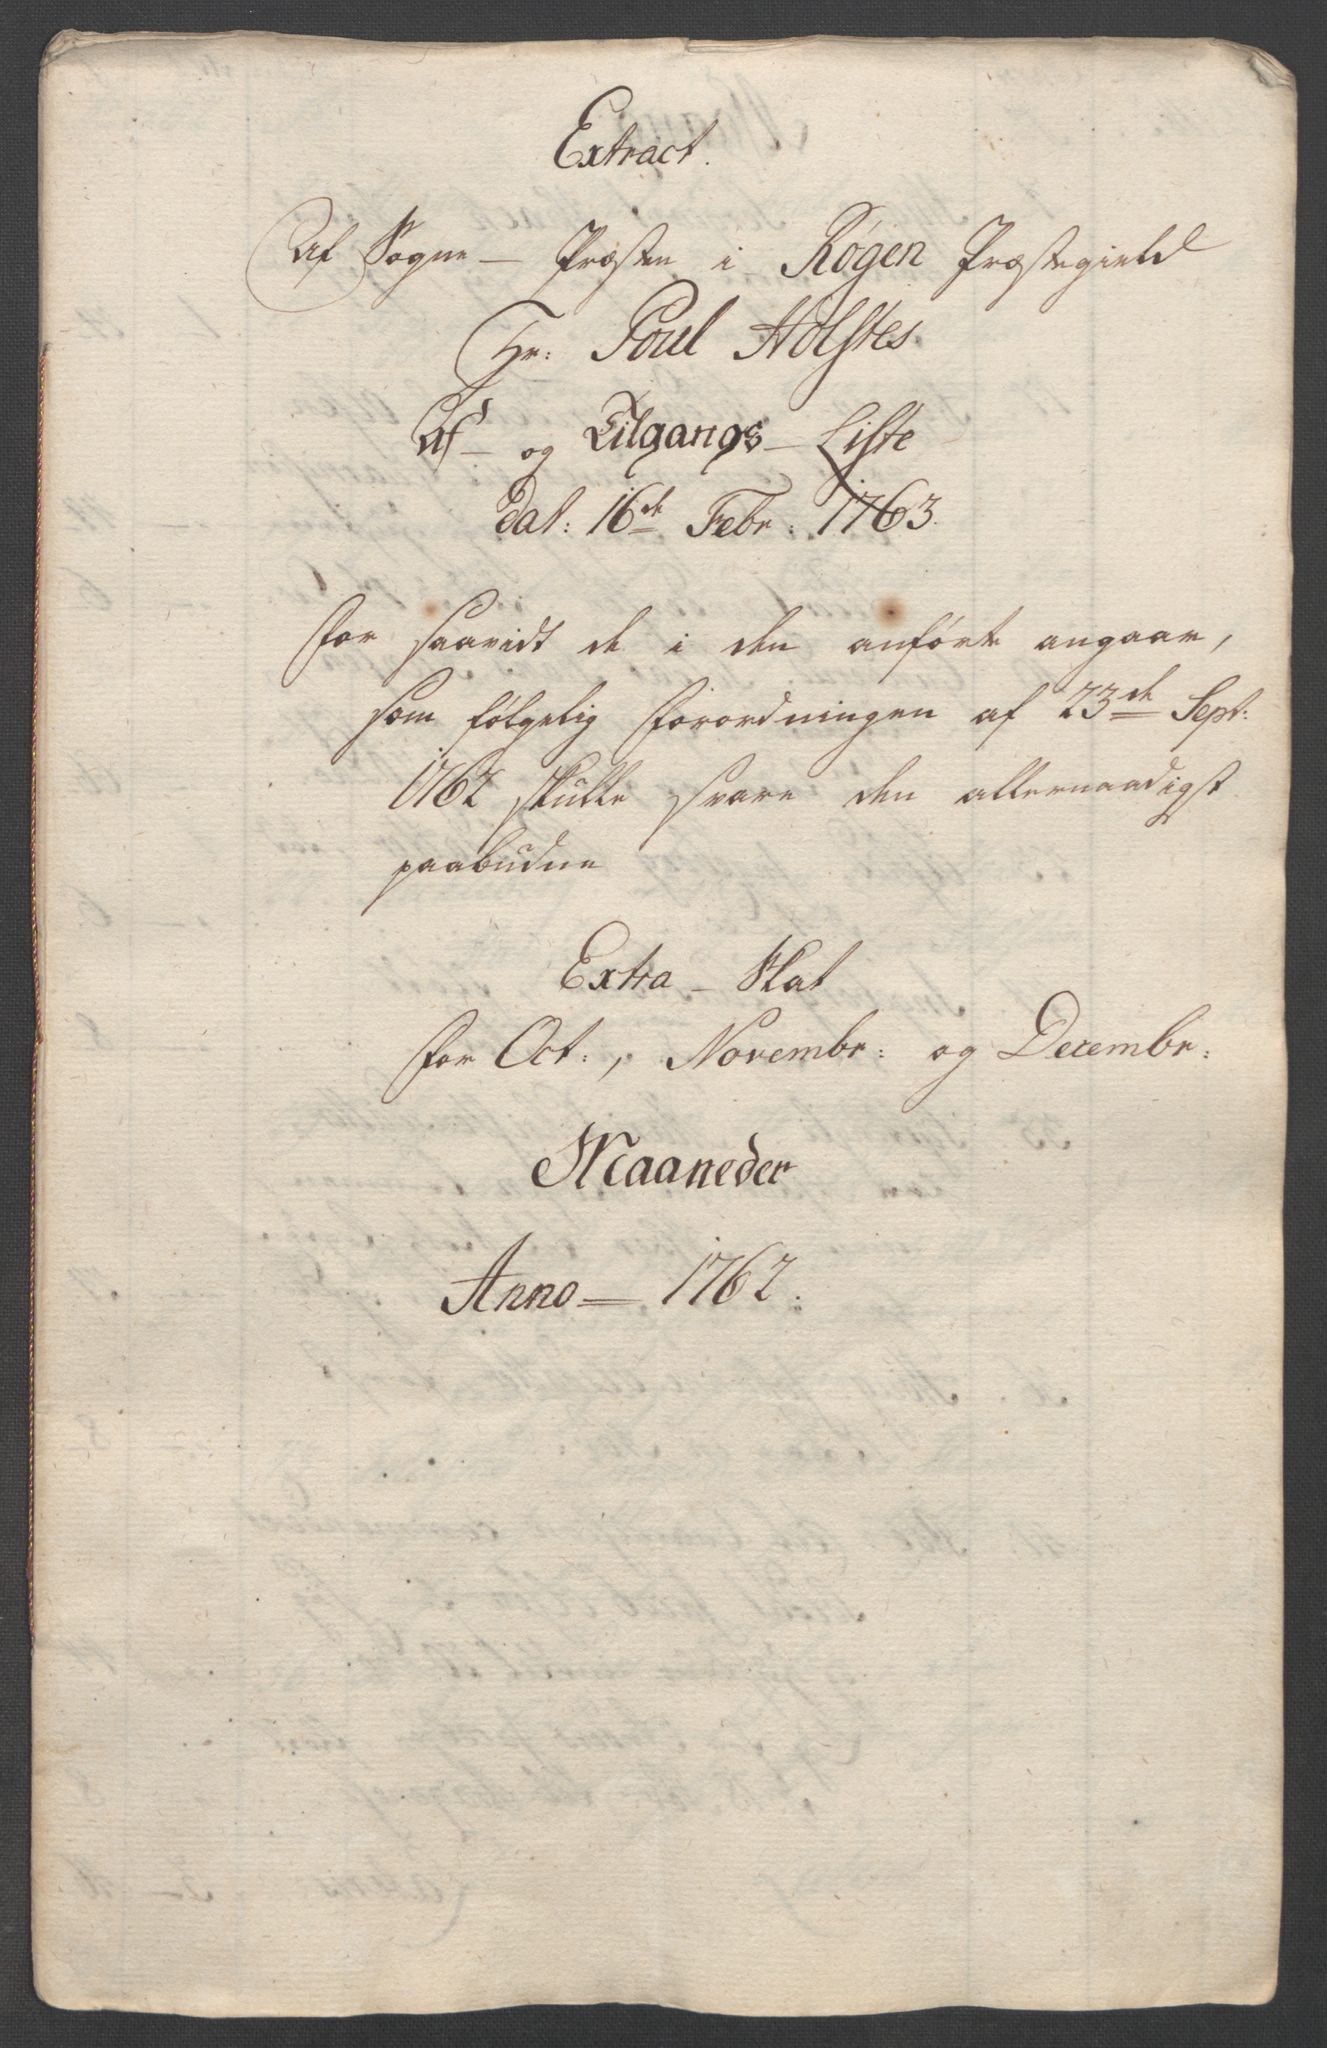 Extract.
Af Sogne- Præsten i Røgen Præstegield
Hr: Poul Holstes
Af- og Tilgangs- Liste
dat: 16de Febr: 1763.
for saavidt de i den anførte angaar,
som følgelig Forordningen af 23de Sept:
1762 skulle svare den allernaadigst
paabudne
Extra- Skat
for Oct:, Novembr: og Decembr:
Maaneder
Anno- 1762.